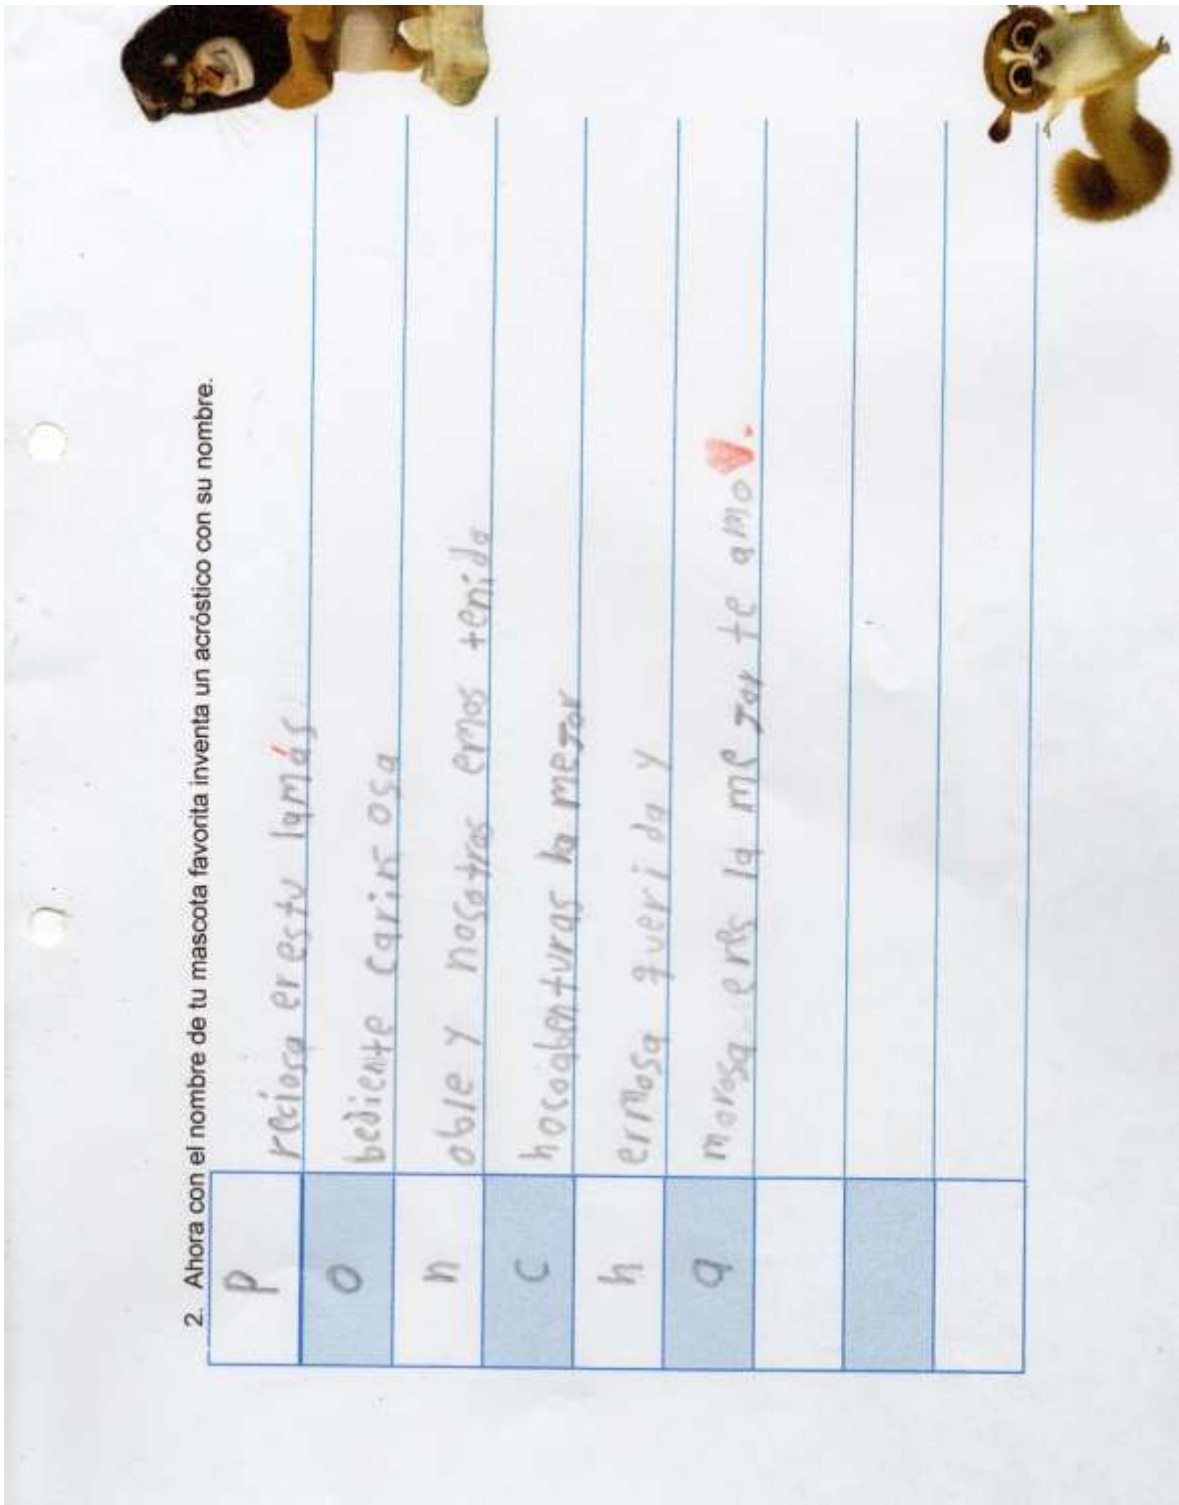 2. Ahora con el nombre de tu mascota favorita inventa un acróstico con su nombre.
P reciosa erestu lamás
o bediente cariñosa
n oble y nosotros emos tenido
c hocoabenturas la mejor
h ermosa querida y
a morosa eres la mejor te amo.